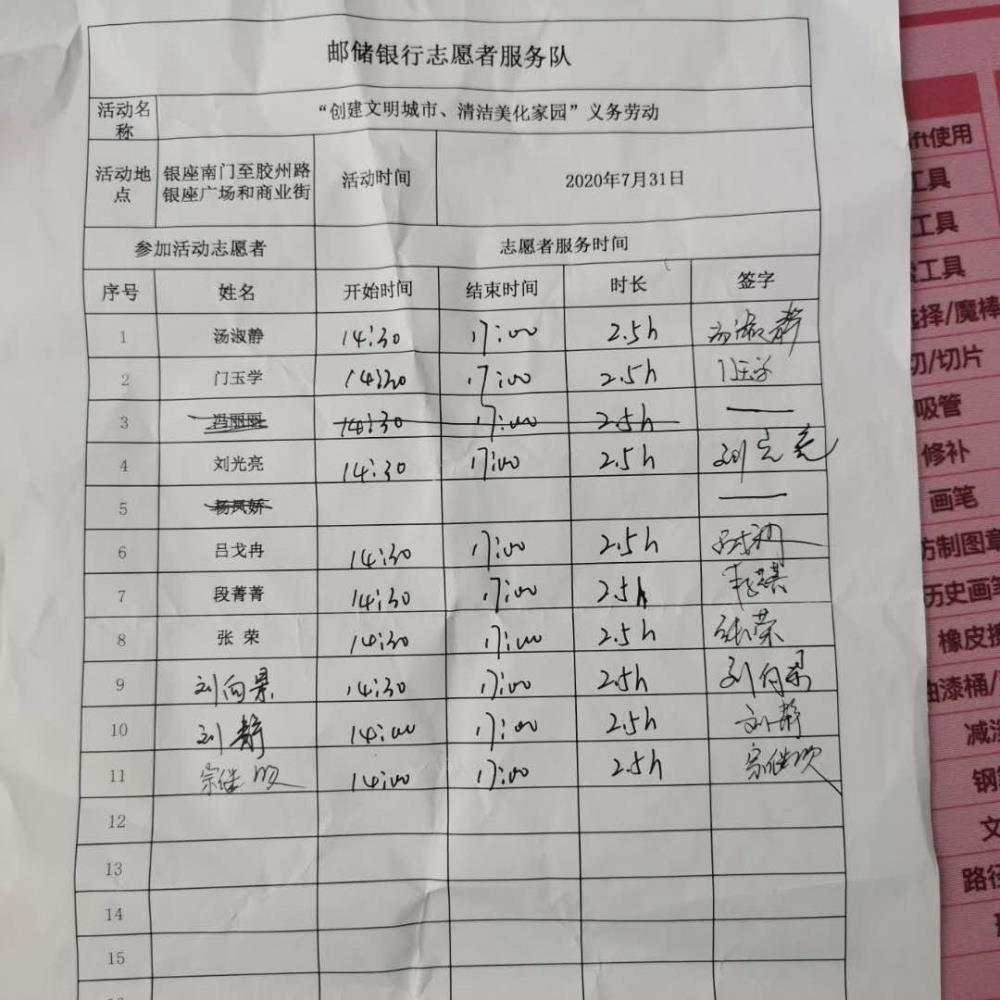 邮储银行志愿者服务队
活动名称 “创建文明城市、清洁美化家园”义务劳动
活动地点 银座南门至胶州路银座广场和商业街 活动时间 2020年7月31日
参加活动志愿者 志愿者服务时间
序号 姓名 开始时间 结束时间 时长 签字
1 汤淑静 14:30 17:00 2.5h 汤淑静
2 门玉学 14:30 17:00 2.5h 门玉学
3 冯丽丽 14:30 17:00 2.5h —
4 刘光亮 14:30 17:00 2.5h 刘光亮
5 杨凤娇 —
6 吕戈冉 14:30 17:00 2.5h
7 段菁菁 14:30 17:00 2.5h
8 张荣 14:30 17:00 2.5h 张荣
9 刘向景 14:30 17:00 2.5h 刘向景
10 刘静 14:00 17:00 2.5h 刘静
11 宗继 14:00 17:00 2.5h 宗继
12
13
14
15
ift使用
工具
工具
工具
选择/魔棒
切/切片
吸管
修补
画笔
仿制图章
历史画笔
橡皮擦
油漆桶/
减淡
钢
文
路径